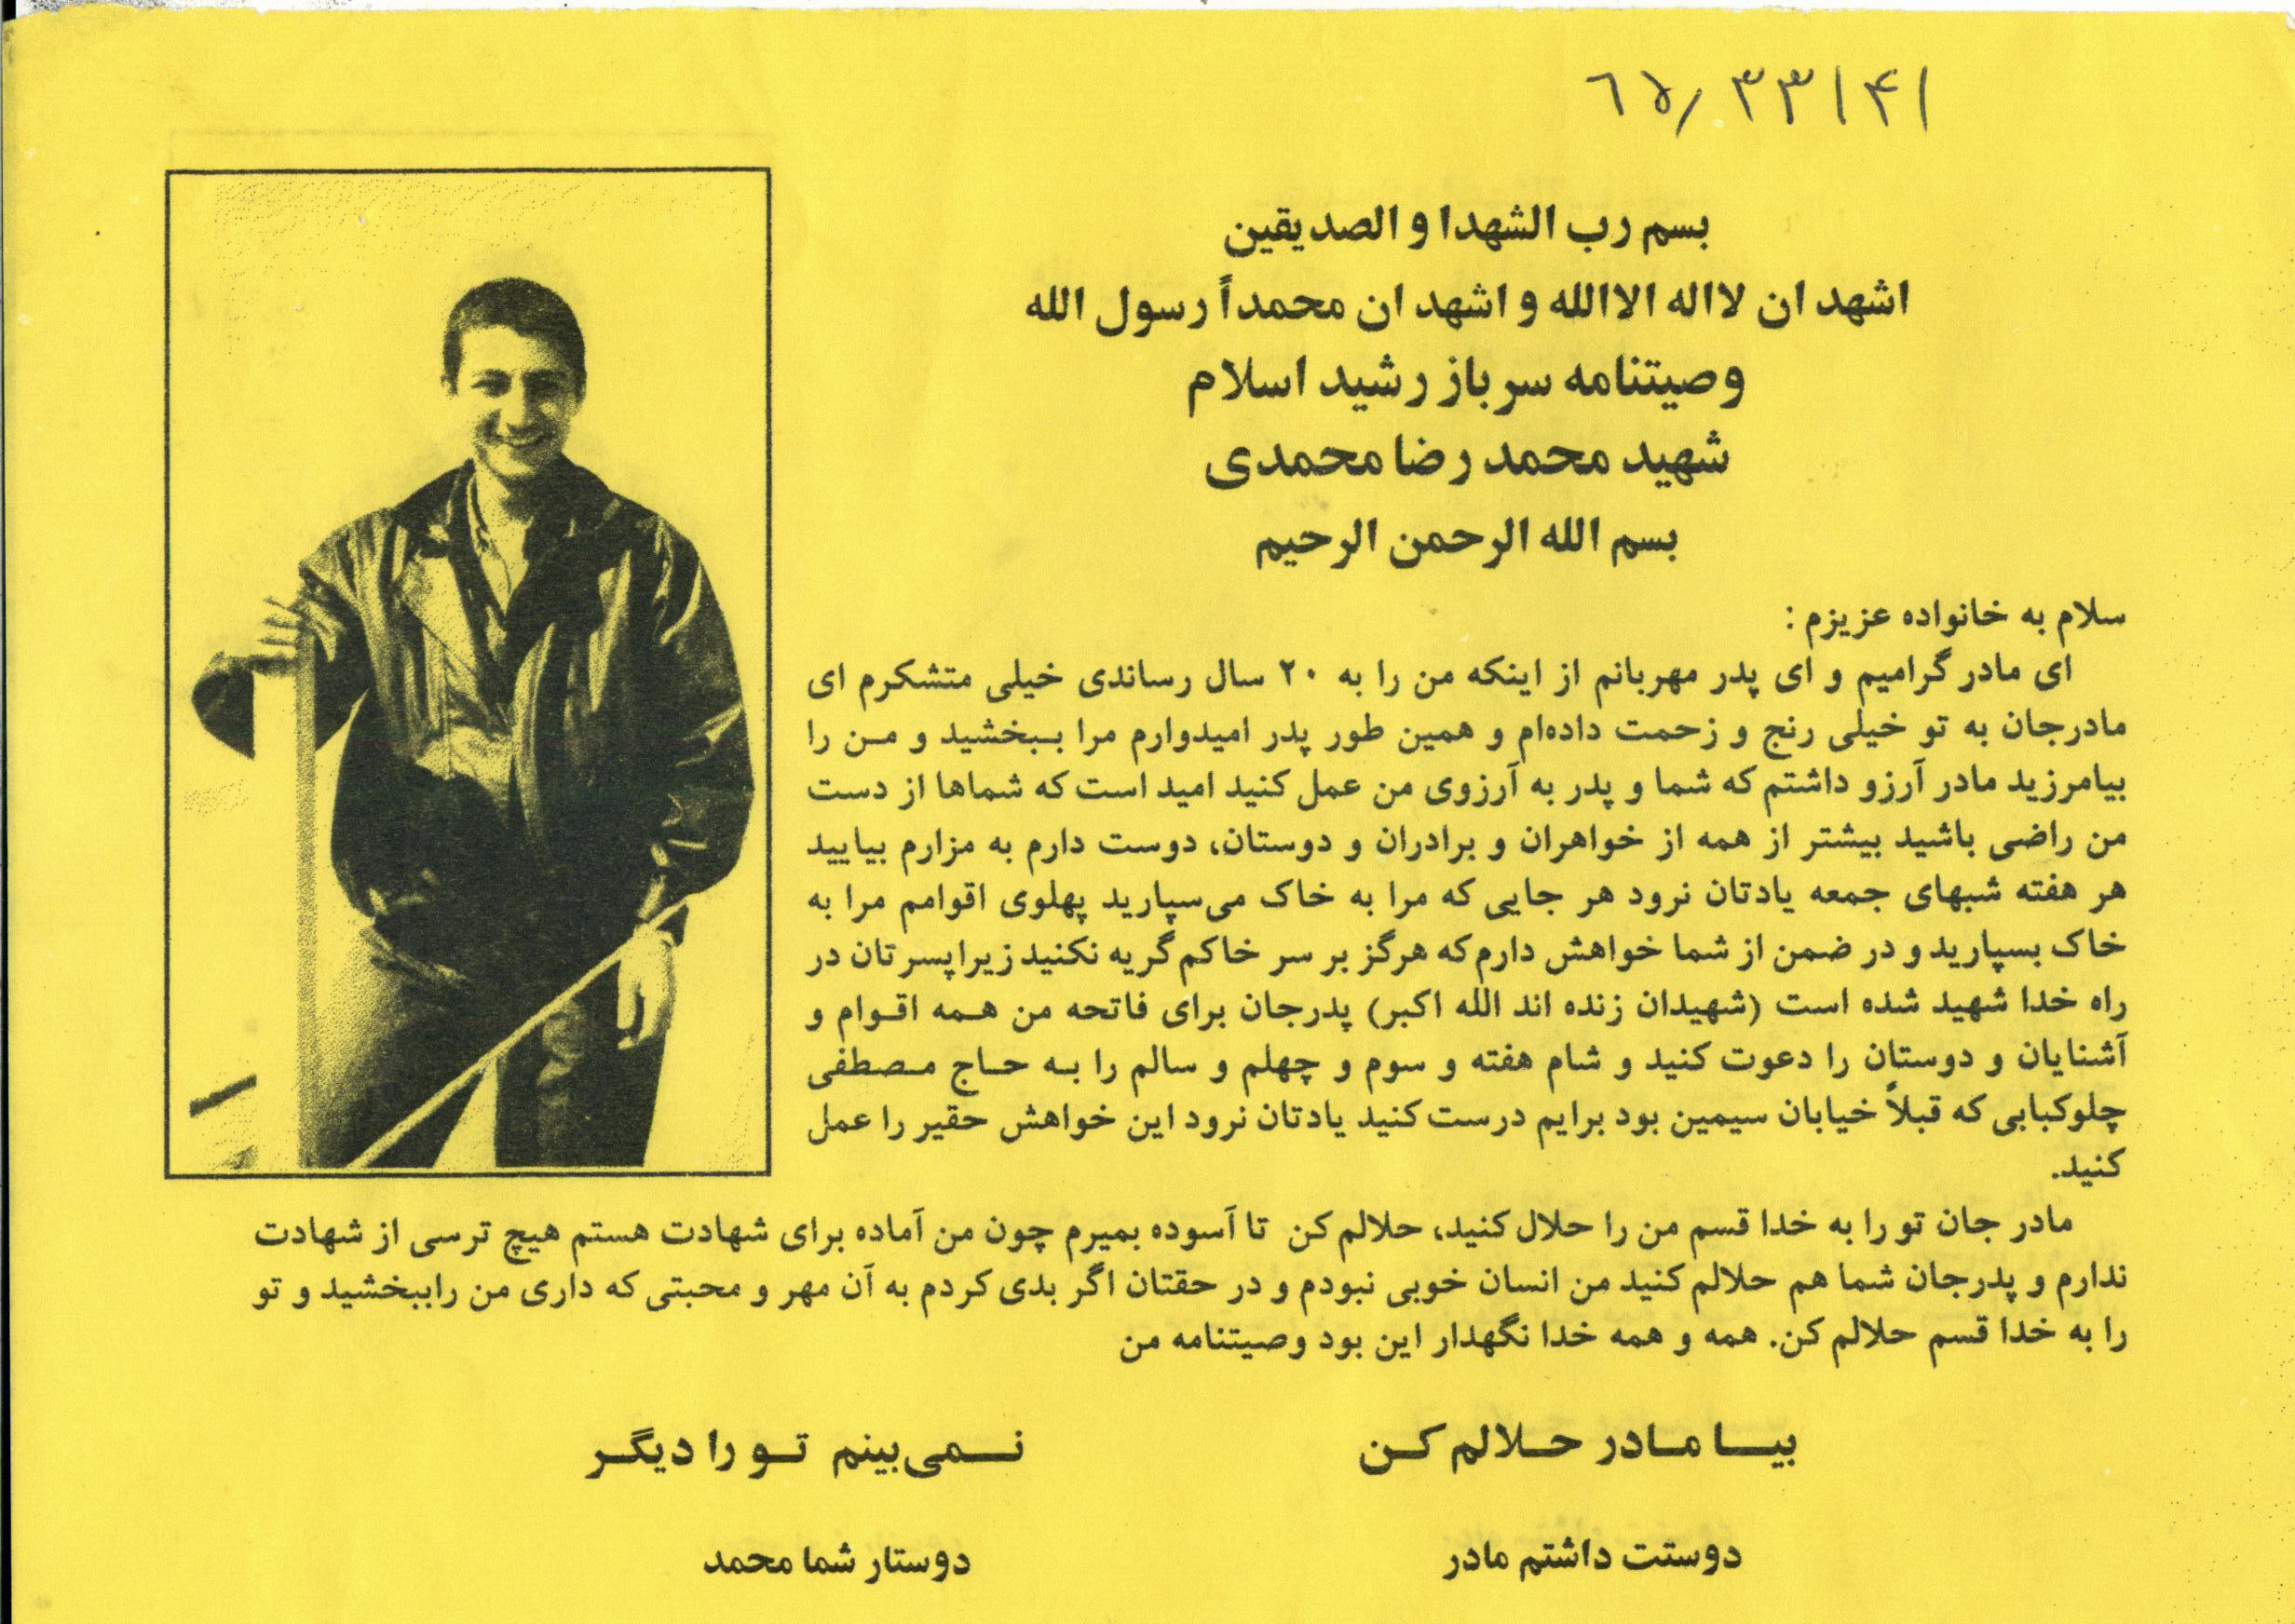 ۶۷٫۳۳۱۴۱
بسم رب الشهدا و الصدیقین
اشهد ان لااله الاالله و اشهد ان محمداً رسول الله
وصیتنامه سرباز رشید اسلام
شهید محمد رضا محمدی
بسم الله الرحمن الرحیم
سلام به خانواده عزیزم :
ای مادر گرامیم و ای پدر مهربانم از اینکه من را به ۲۰ سال رساندی خیلی متشکرم ای
مادرجان به تو خیلی رنج و زحمت داده‌ام و همین طور پدر امیدوارم مرا ببخشید و من را
بیامرزید مادر آرزو داشتم که شما و پدر به آرزوی من عمل کنید امید است که شماها از دست
من راضی باشید بیشتر از همه از خواهران و برادران و دوستان، دوست دارم به مزارم بیایید
هر هفته شبهای جمعه یادتان نرود هر جایی که مرا به خاک می‌سپارید پهلوی اقوامم مرا به
خاک بسپارید و در ضمن از شما خواهش دارم که هرگز بر سر خاکم گریه نکنید زیرا پسرتان در
راه خدا شهید شده است (شهیدان زنده اند الله اکبر) پدرجان برای فاتحه من همه اقوام و
آشنایان و دوستان را دعوت کنید و شام هفته و سوم و چهلم و سالم را به حاج مصطفی
چلوکبابی که قبلاً خیابان سیمین بود برایم درست کنید یادتان نرود این خواهش حقیر را عمل
کنید.
مادر جان تو را به خدا قسم من را حلال کنید، حلالم کن تا آسوده بمیرم چون من آماده برای شهادت هستم هیچ ترسی از شهادت
ندارم و پدرجان شما هم حلالم کنید من انسان خوبی نبودم و در حقتان اگر بدی کردم به آن مهر و محبتی که داری من راببخشید و تو
را به خدا قسم حلالم کن. همه و همه خدا نگهدار این بود وصیتنامه من
بیا مادر حلالم کن نمی‌بینم تو را دیگر
دوستت داشتم مادر دوستار شما محمد